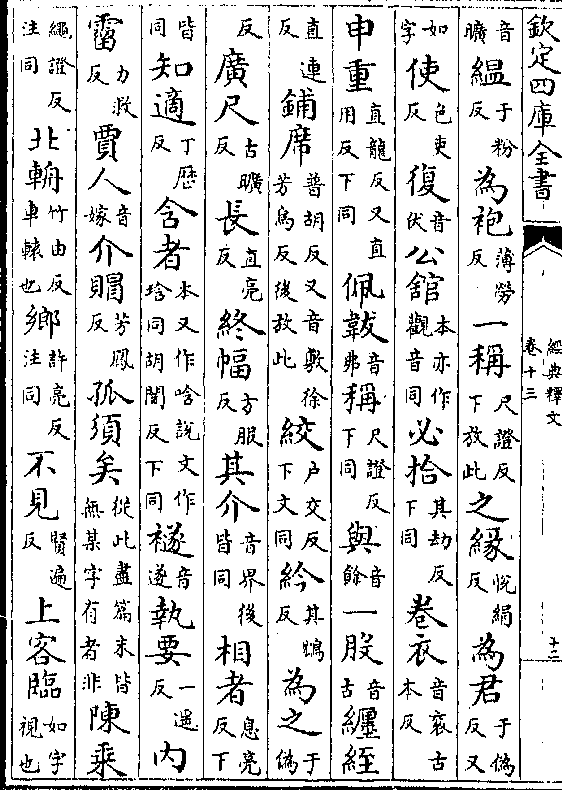 欽定四庫全書
經典釋文
卷十三
十三
音曠縕于粉反為袍薄勞反一稱尺證反下放此之緣悅絹反為君于偽反又
如字使色吏反復音伏公館本亦作觀音同必拾其劫反下同卷衣音衮古本反
申重直龍反又直用反下同佩韍音弗稱尺證反下同與音餘一股音古纏絰
直連反鋪席普胡反又音敷徐芳烏反後放此絞戶交反下文同紟其鴆反為之于偽
反廣尺古曠反長直亮反終幅方服反其介音界後皆同相者息亮反下
皆同知適丁歷反含者本又作唅說文作琀同胡闇反下同襚音遂執要一遥反內
霤力救反賈人音嫁介賵芳鳳反孤須矣從此盡篇末皆無某字有者非陳乘
繩證反注同北輈竹由反車轅也鄉許亮反注同不見賢遍反上客臨如字視也